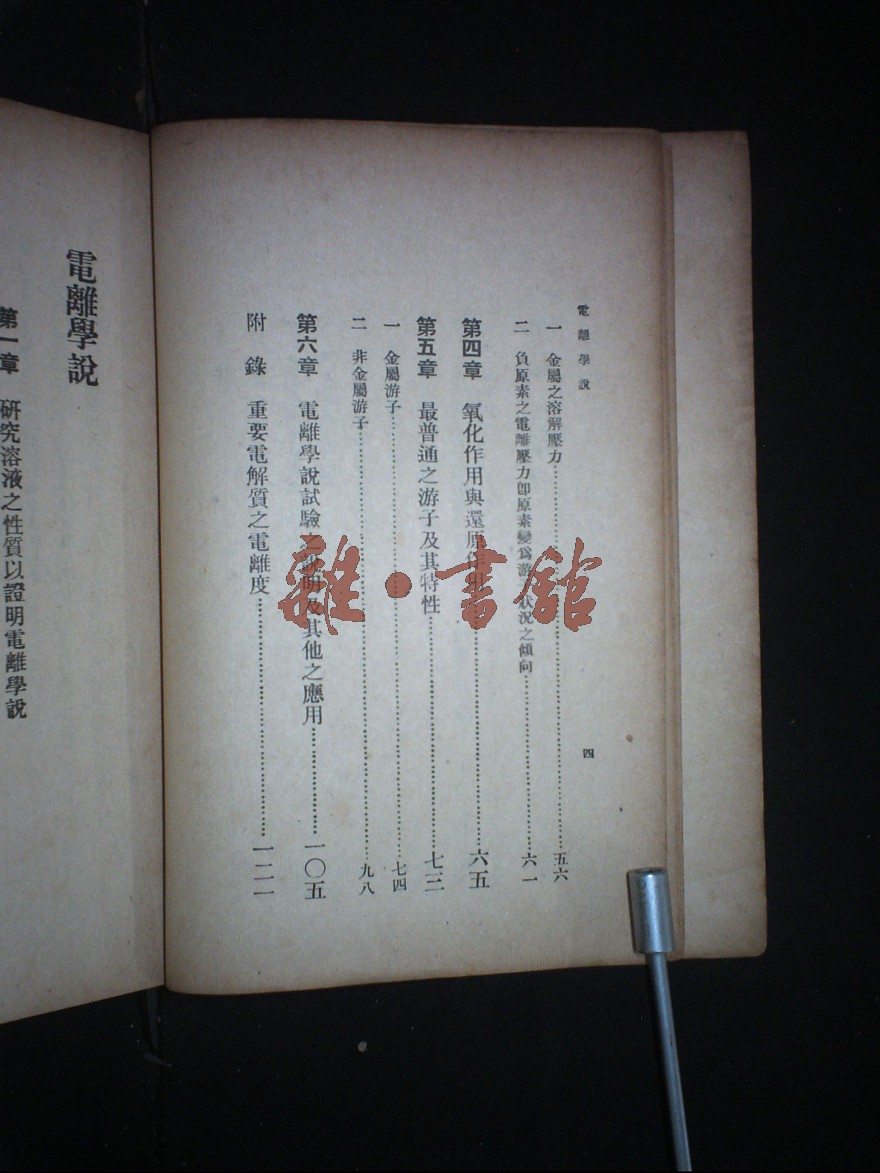 電離學說
四
一 金屬之溶解壓力……五六
二 負原素之電離壓力卽原素變爲游 狀況之傾向……六一
第四章 氧化作用與還原作用……六五
第五章 最普通之游子及其特性……七三
一 金屬游子……七四
二 非金屬游子……九八
第六章 電離學說試驗之說明及其他之應用……一〇五
附錄 重要電解質之電離度……一二一
電離學說
第一章 硏究溶液之性質以證明電離學說
雜·書館